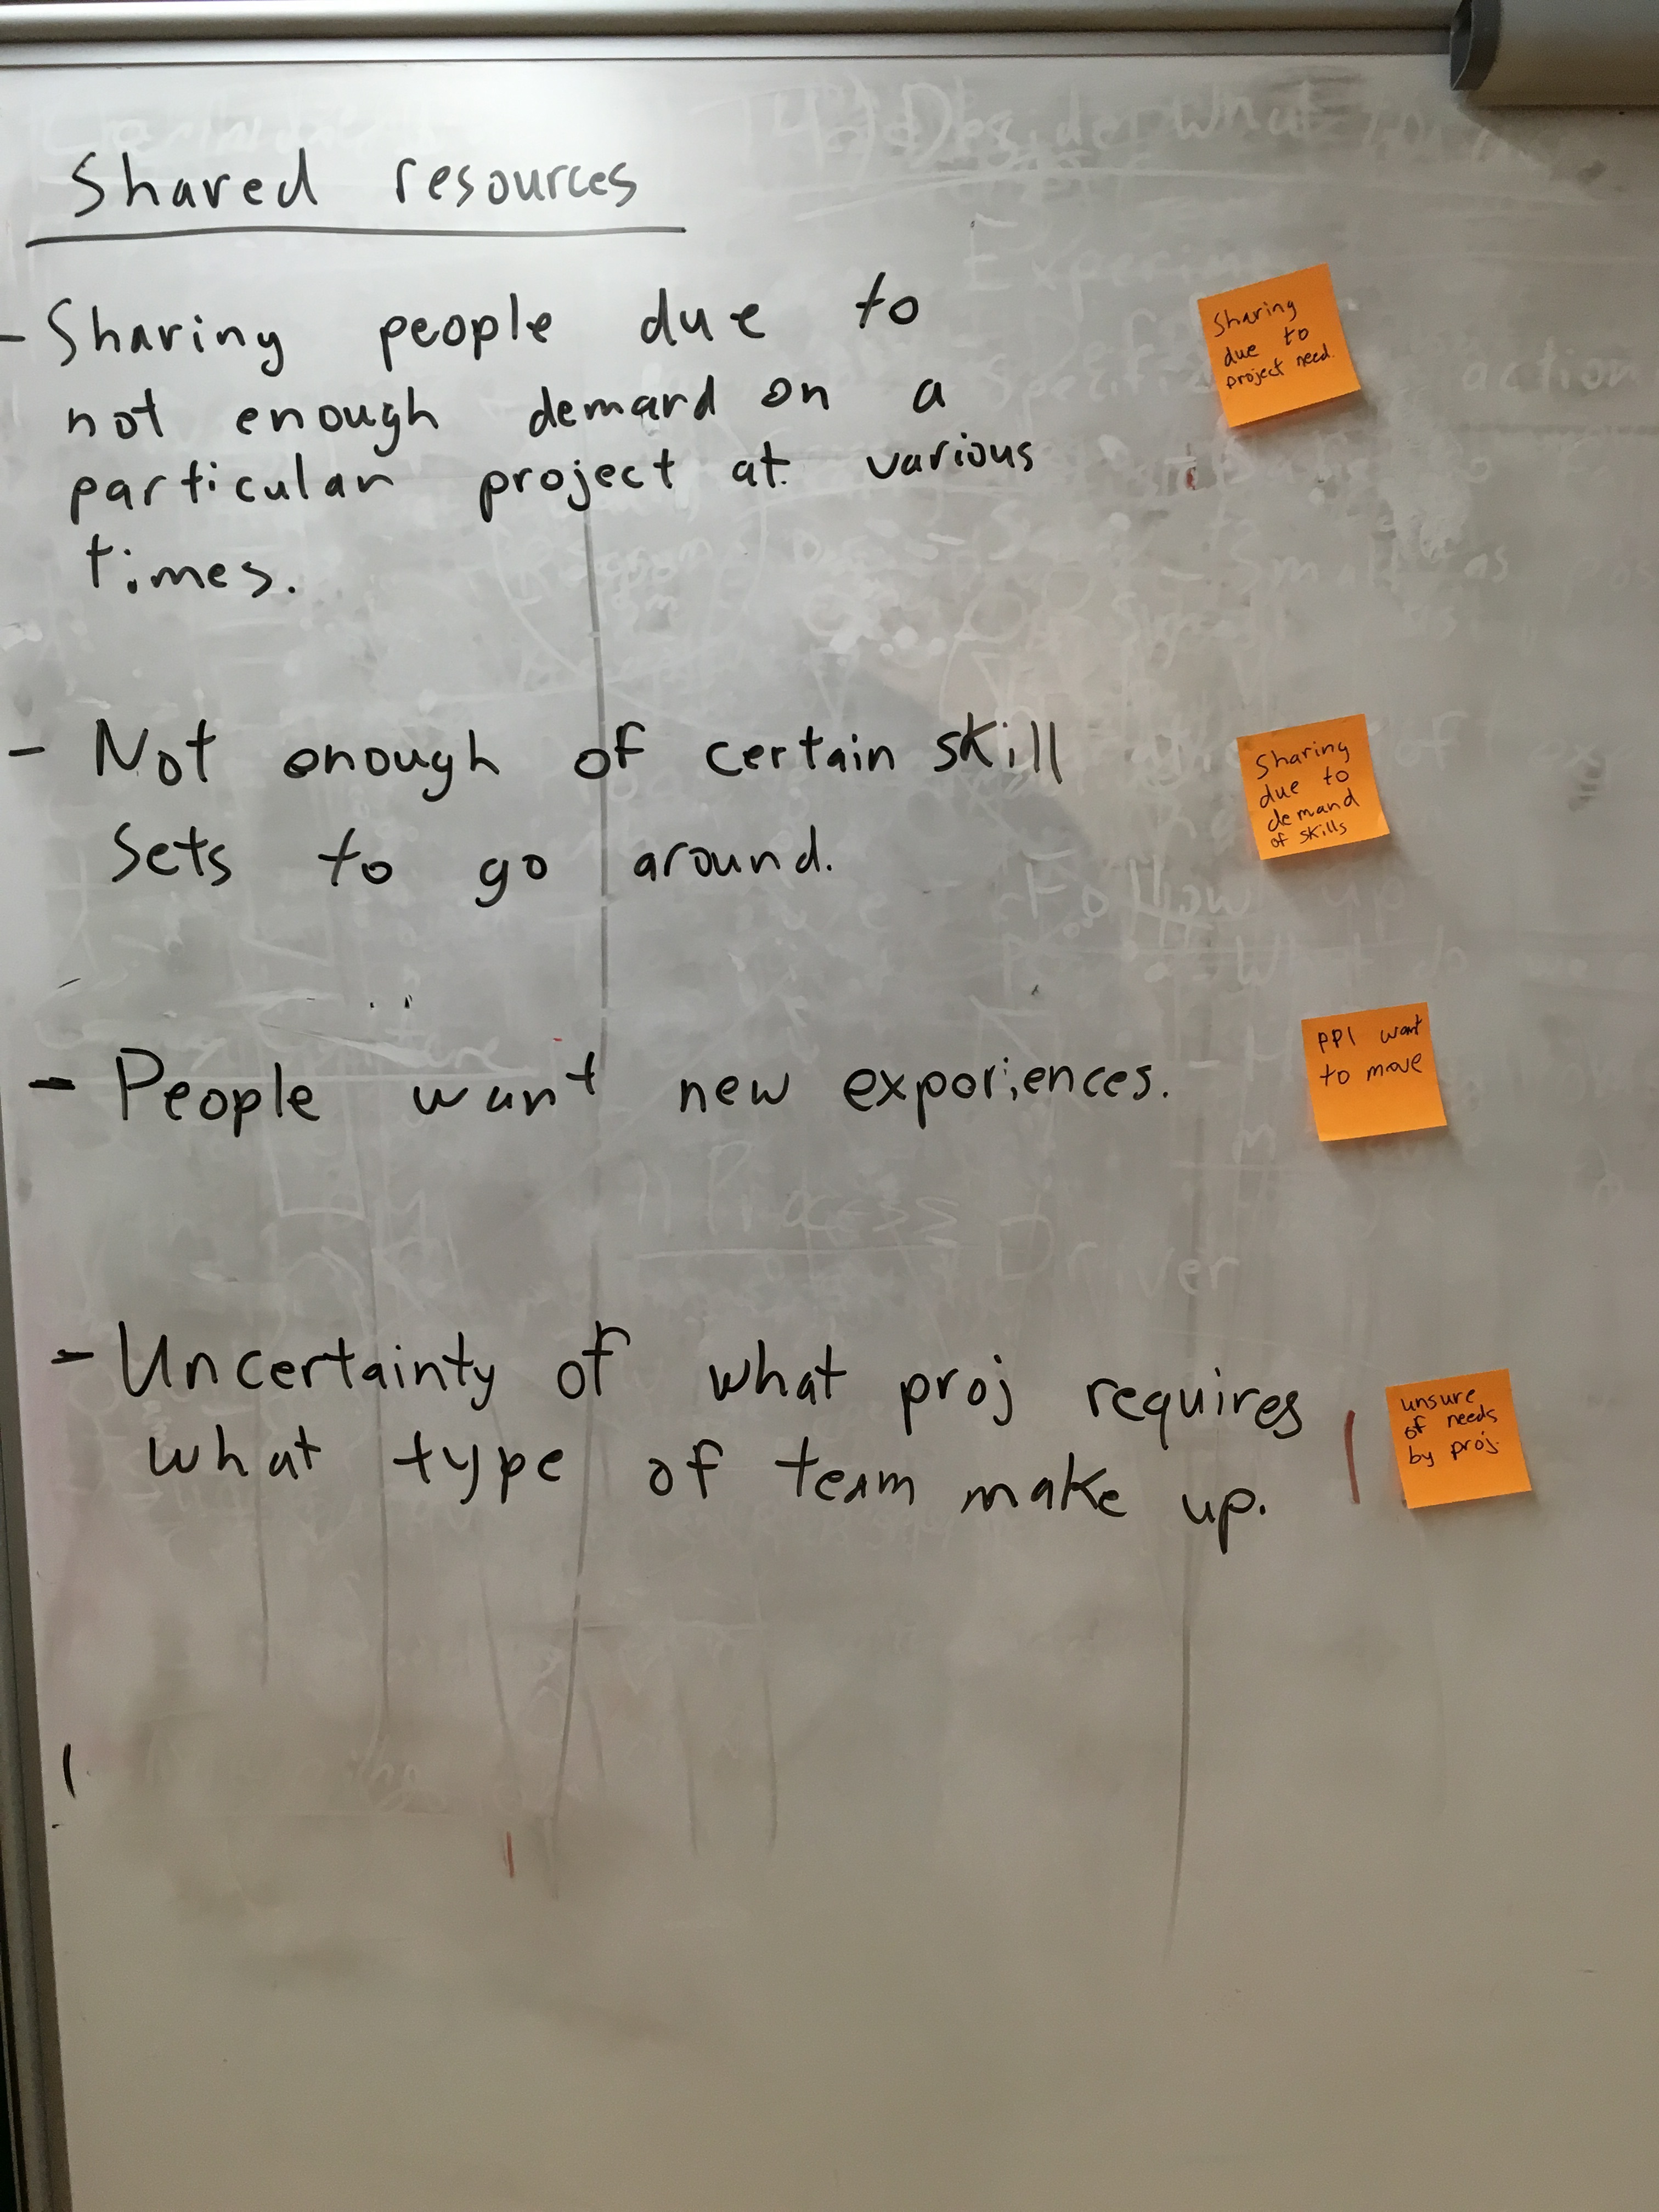 Shared resources
- Sharing people due to
not enough demand on a
particular project at various
times.
Sharing
due to
project need.
- Not enough of certain skill
sets to go around.
Sharing
due to
demand
of skills
- People want new experiences.
ppl want
to move
- Uncertainty of what proj requires
what type of team make up.
unsure
of needs
by proj.
Follow up
Process
Driver